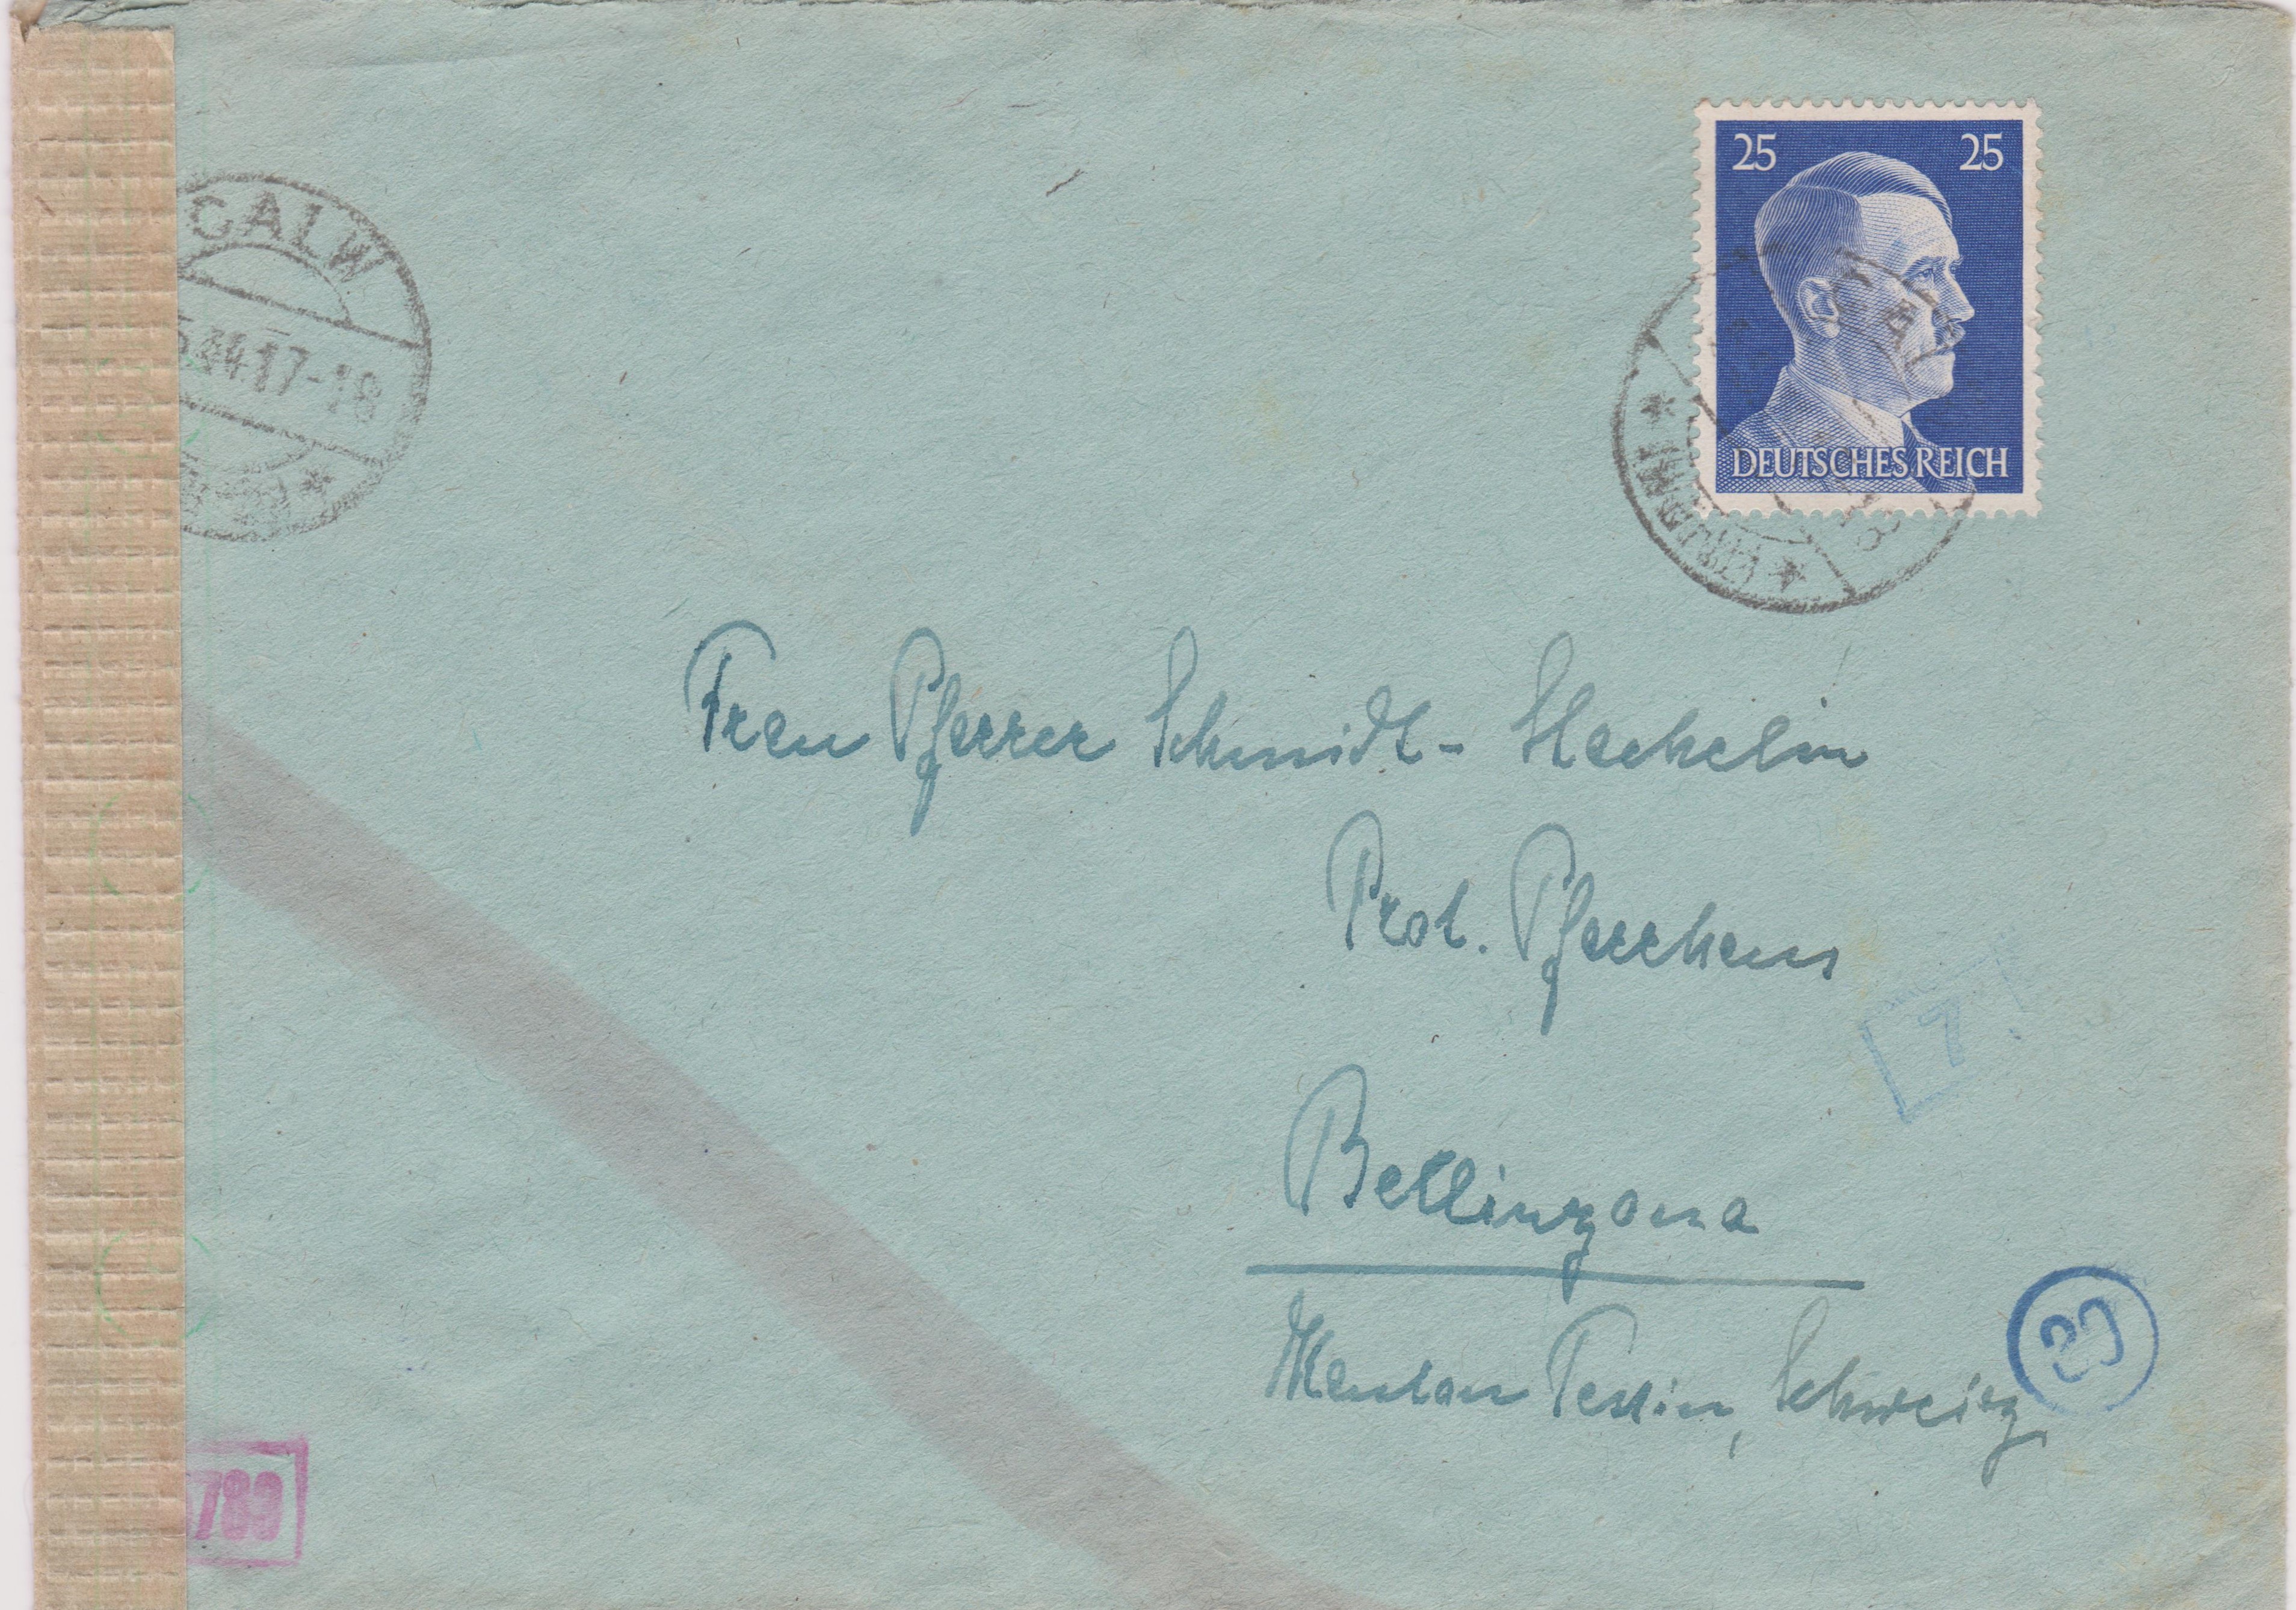 25 25
DEUTSCHES REICH
CALW
5.44.17-18
Frau Pfarrer Schmidt-Staehelin
Prot. Pfarrhaus
Bellinzona
Kanton Tessin, Schweiz
7
20
789